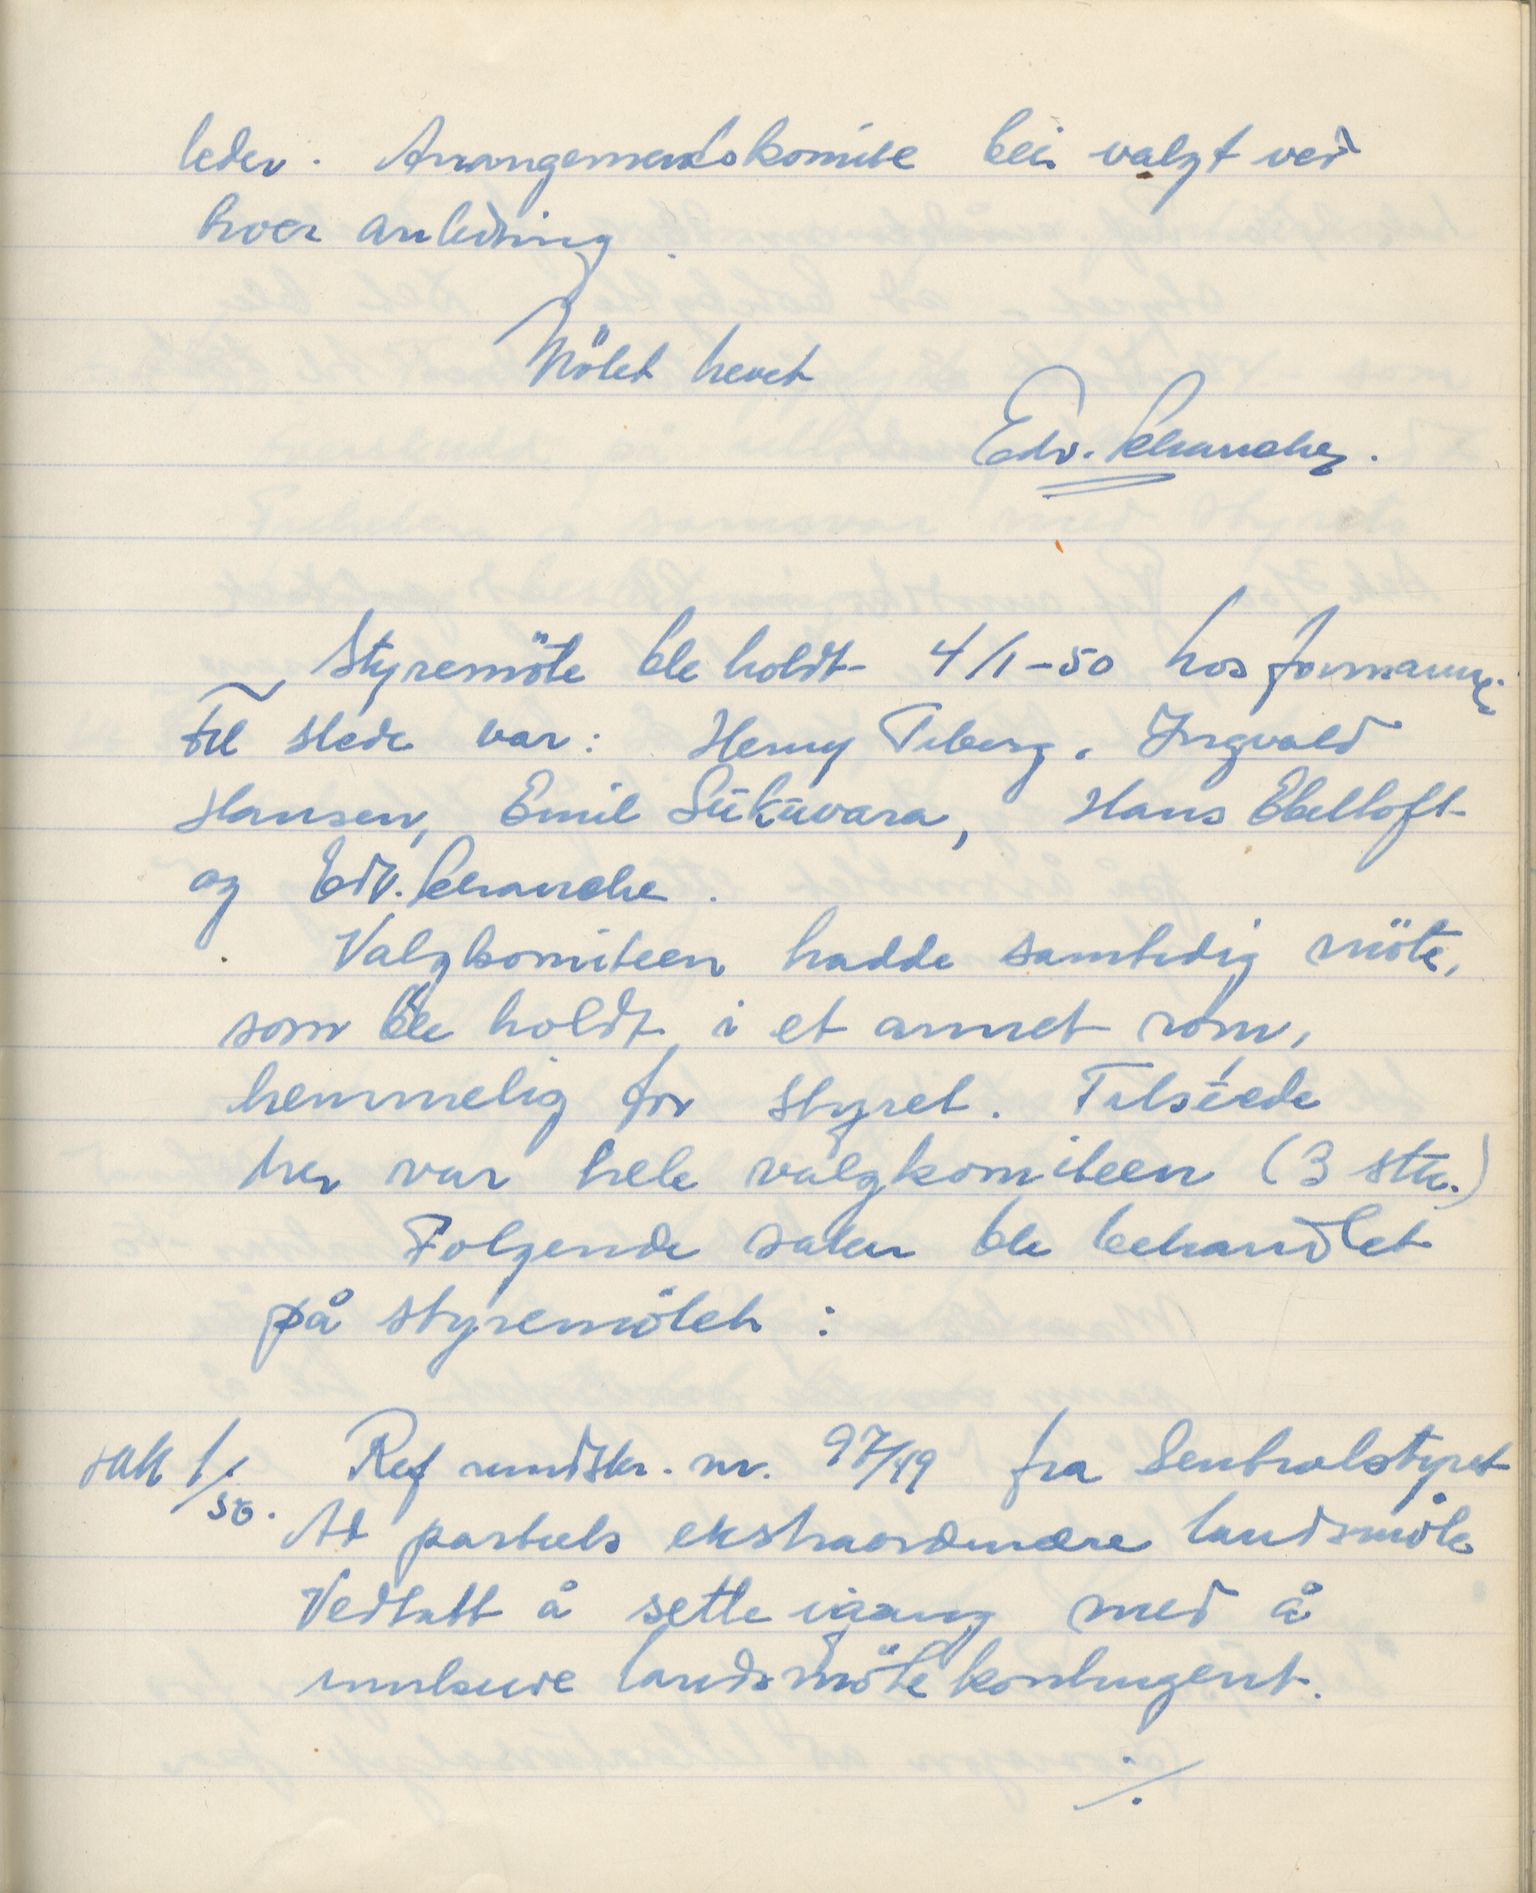 leder. Arrangementskomite blir valgt ved
hver anledning.
Mötet hevet
Edv. Schanche.
Styremöte ble holdt 4/1-50 hos formannen.
Til stede var: Henry Tiberg. Ingvald
Hansen, Emil Siikavara, Hans Ebeltoft
og Edv. Schanche.
Valgkomiteen hadde samtidig möte,
som ble holdt i et annet rom,
hemmelig for styret. Tilstede
her var hele valgkomiteen (3 stk.)
Folgende saker ble behandlet
på styremötet:
sak 1/50. Ref rundskr. nr. 97/49 fra Sentralstyret
At partiets ekstraordinære landsmöte
Vedtatt å sette igang med å
innkreve landsmötekontingent.
./.